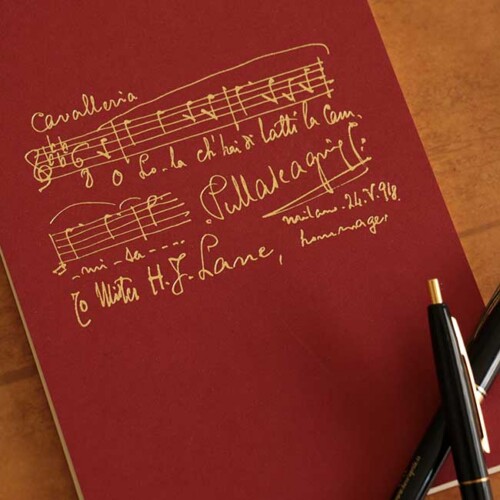 Cavalleria
6
8 O Lo-la ch'hai di latti la Cam-
- mi - sa - - - -
P. Mascagni
Milano. 24.V.918.
hommage,
To Mister H. J. Lane,